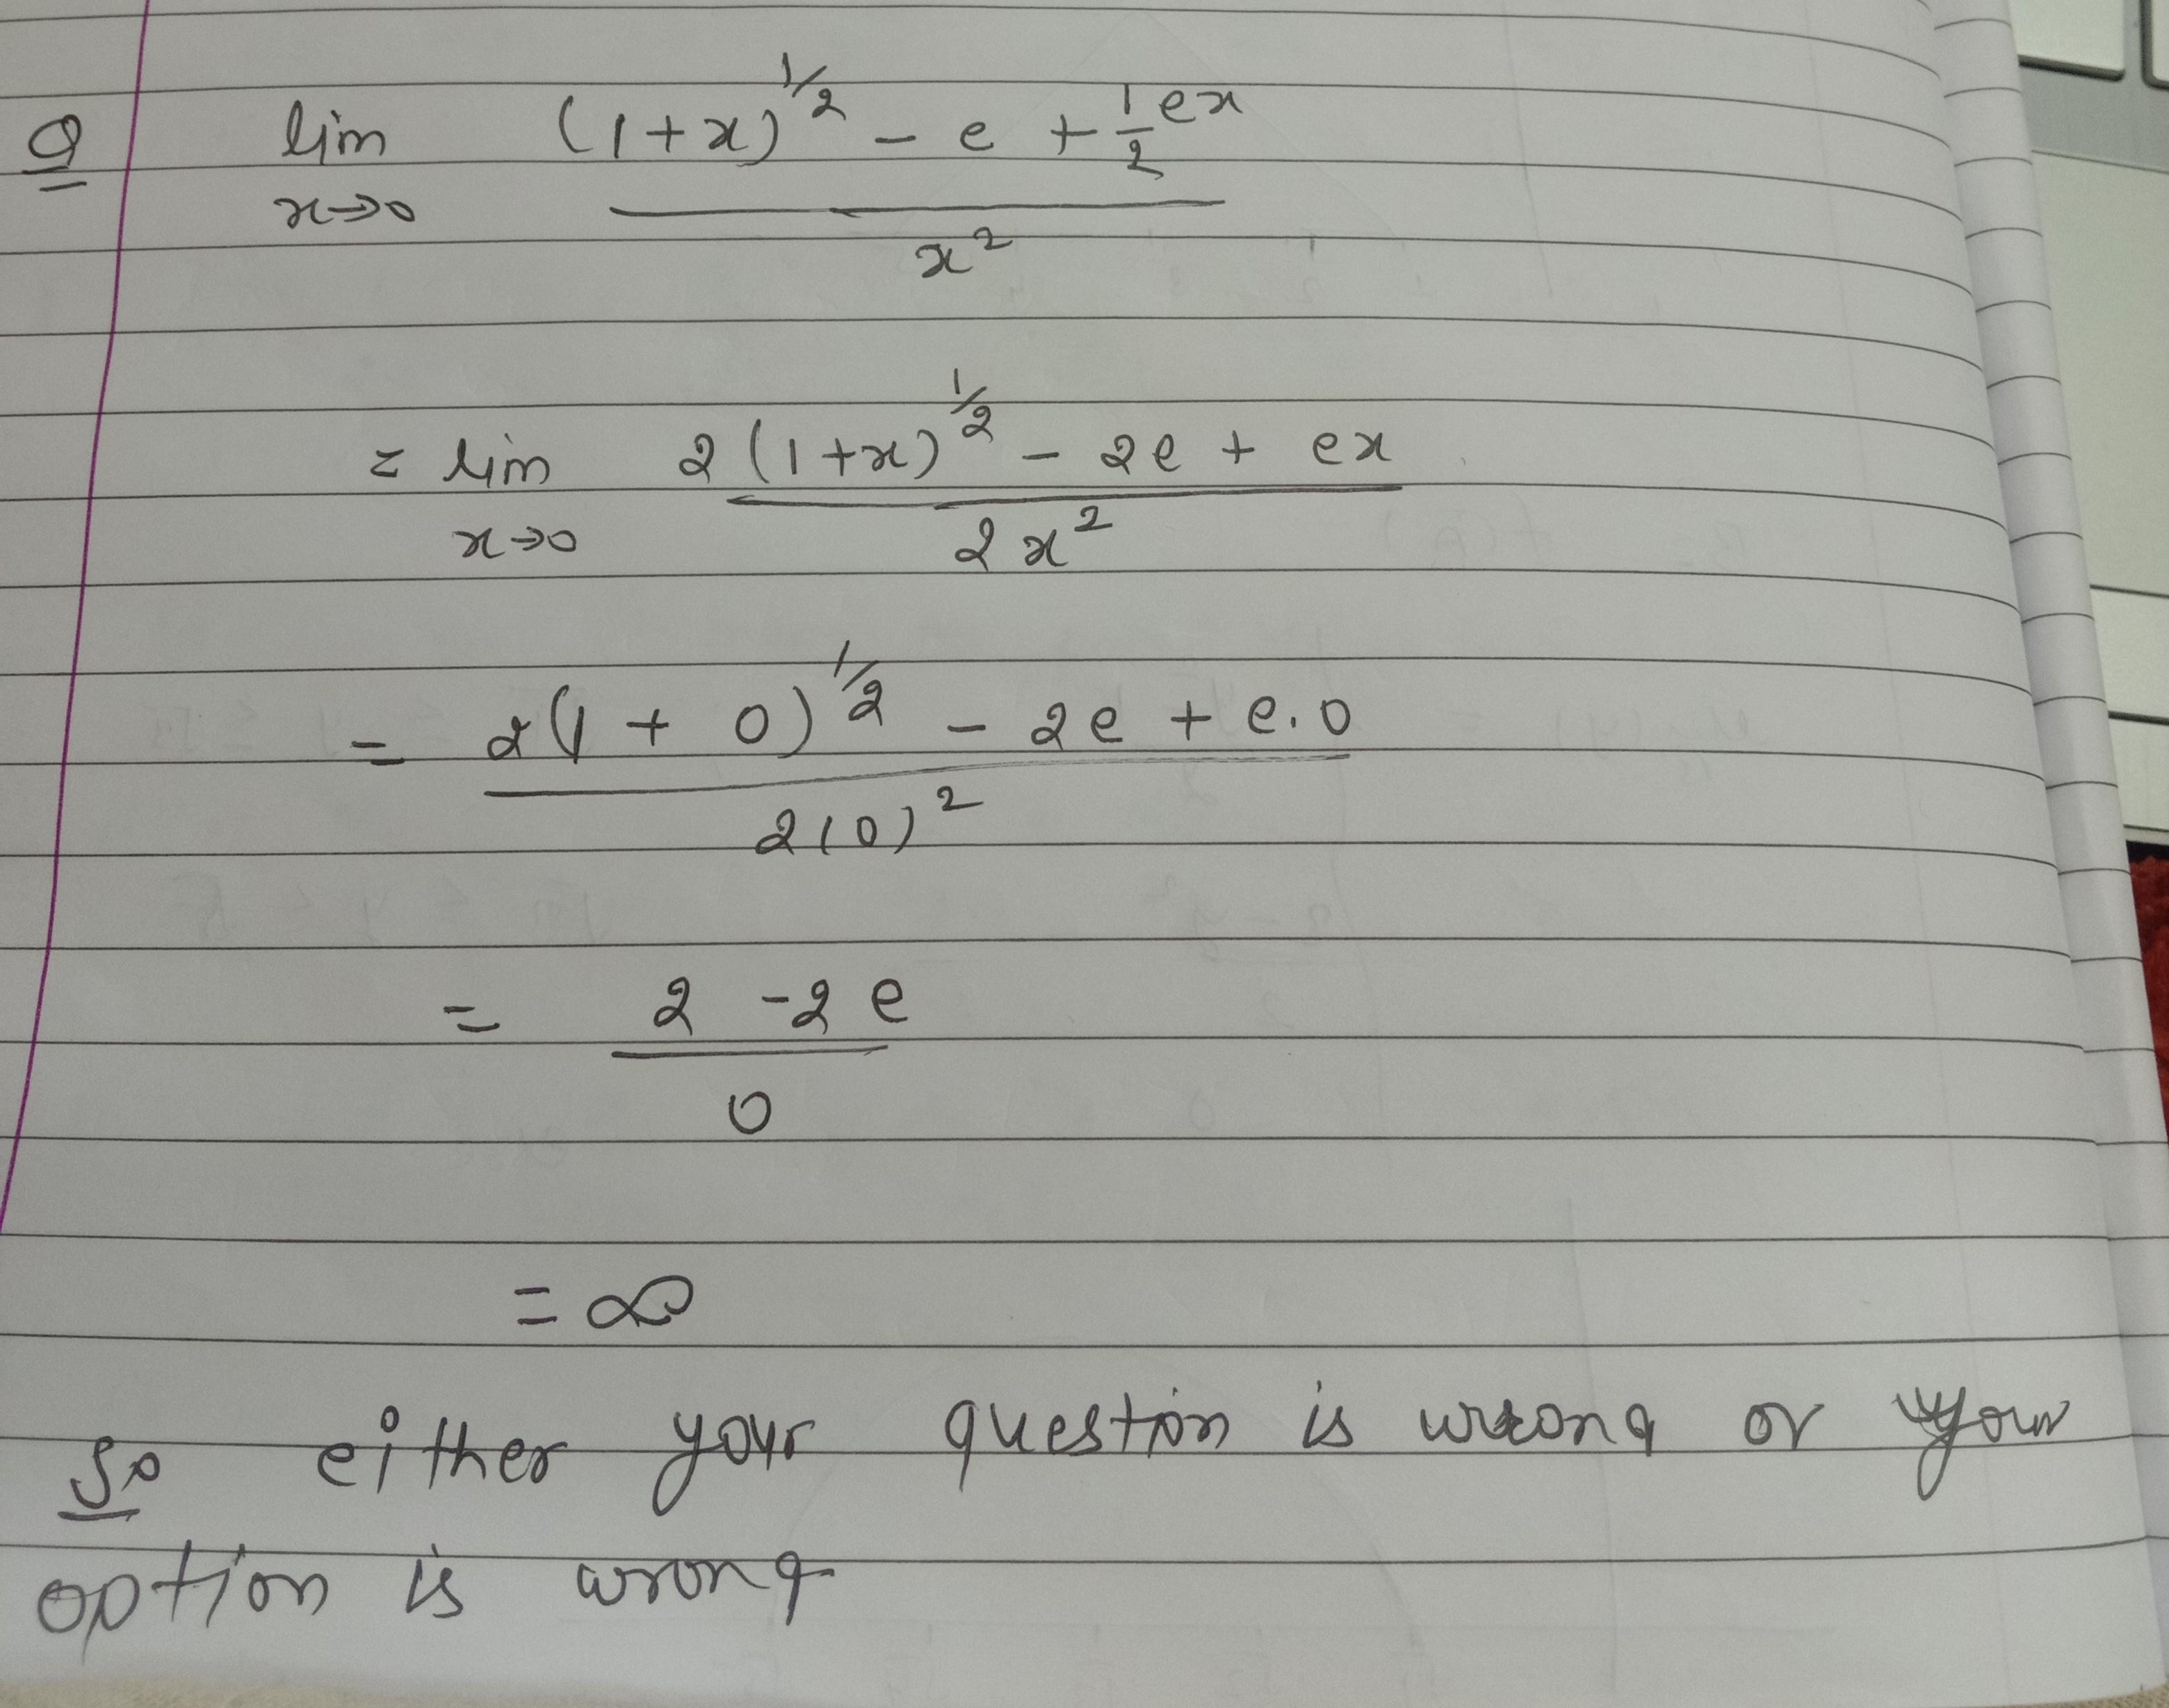 Q lim x→0 ((1+x)^(1/2) - e + 1/2 ex) / x^2
= lim x→0 (2(1+x)^(1/2) - 2e + ex) / 2x^2
= (2(1+0)^(1/2) - 2e + e.0) / 2(0)^2
= (2 - 2e) / 0
= ∞
So either your question is wrong or your
option is wrong